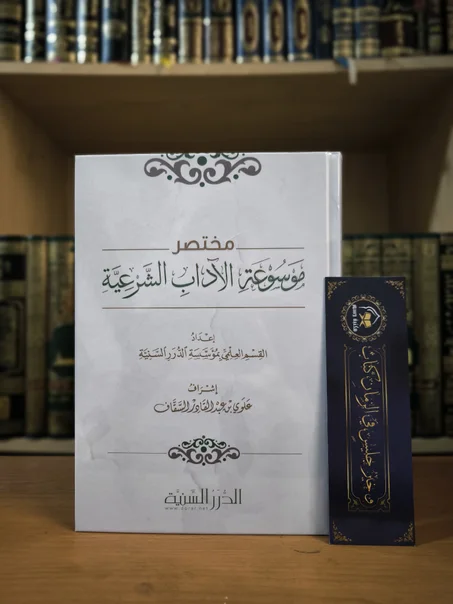 مختصر
مَوْسُوعَةِ الآدَابِ الشَّرْعِيَّةِ
إعْدَادُ
القِسْمِ العِلْمِيِّ بِمُؤَسَّسَةِ الدُّرَرِ السَّنِيَّةِ
إشْرَاف
عَلَوِيِّ بنِ عَبْدِ القَادِرِ السَّقَّاف
الدُّرَرُ السَّنِيَّةُ
www.dorar.net
وخير جليس في الزمان كتاب